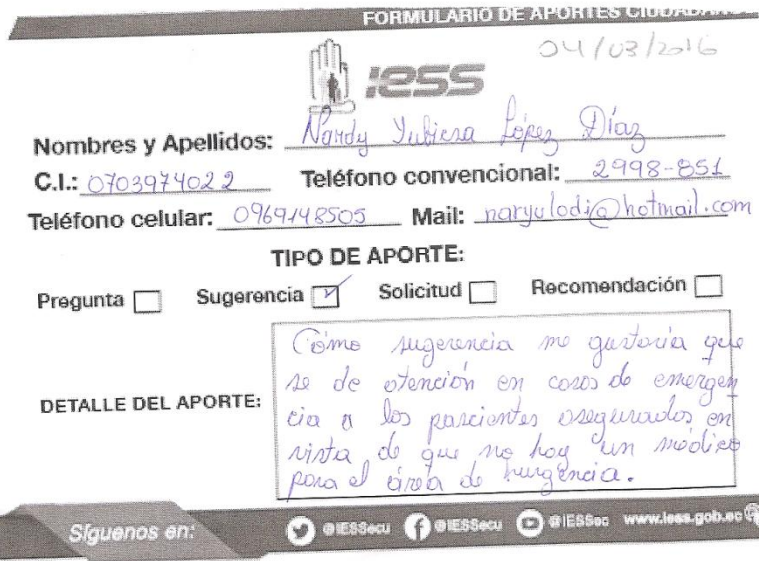 FORMULARIO DE APORTES CIUDADANOS
04/03/2016
IESS
Nombres y Apellidos: Nardy Yubicsa López Díaz
C.I.: 0703974022 Teléfono convencional: 2998-851
Teléfono celular: 0969148505 Mail: naryulodi@hotmail.com
TIPO DE APORTE:
Pregunta Sugerencia Solicitud Recomendación
DETALLE DEL APORTE:
Cómo sugerencia me gustaría que
se de atención en casos de emergen
cia a los pascientes asegurados en
vista de que no hay un médico
para el área de hurgencia.
Síguenos en: @IESSecu @IESSecu @IESSec www.iess.gob.ec